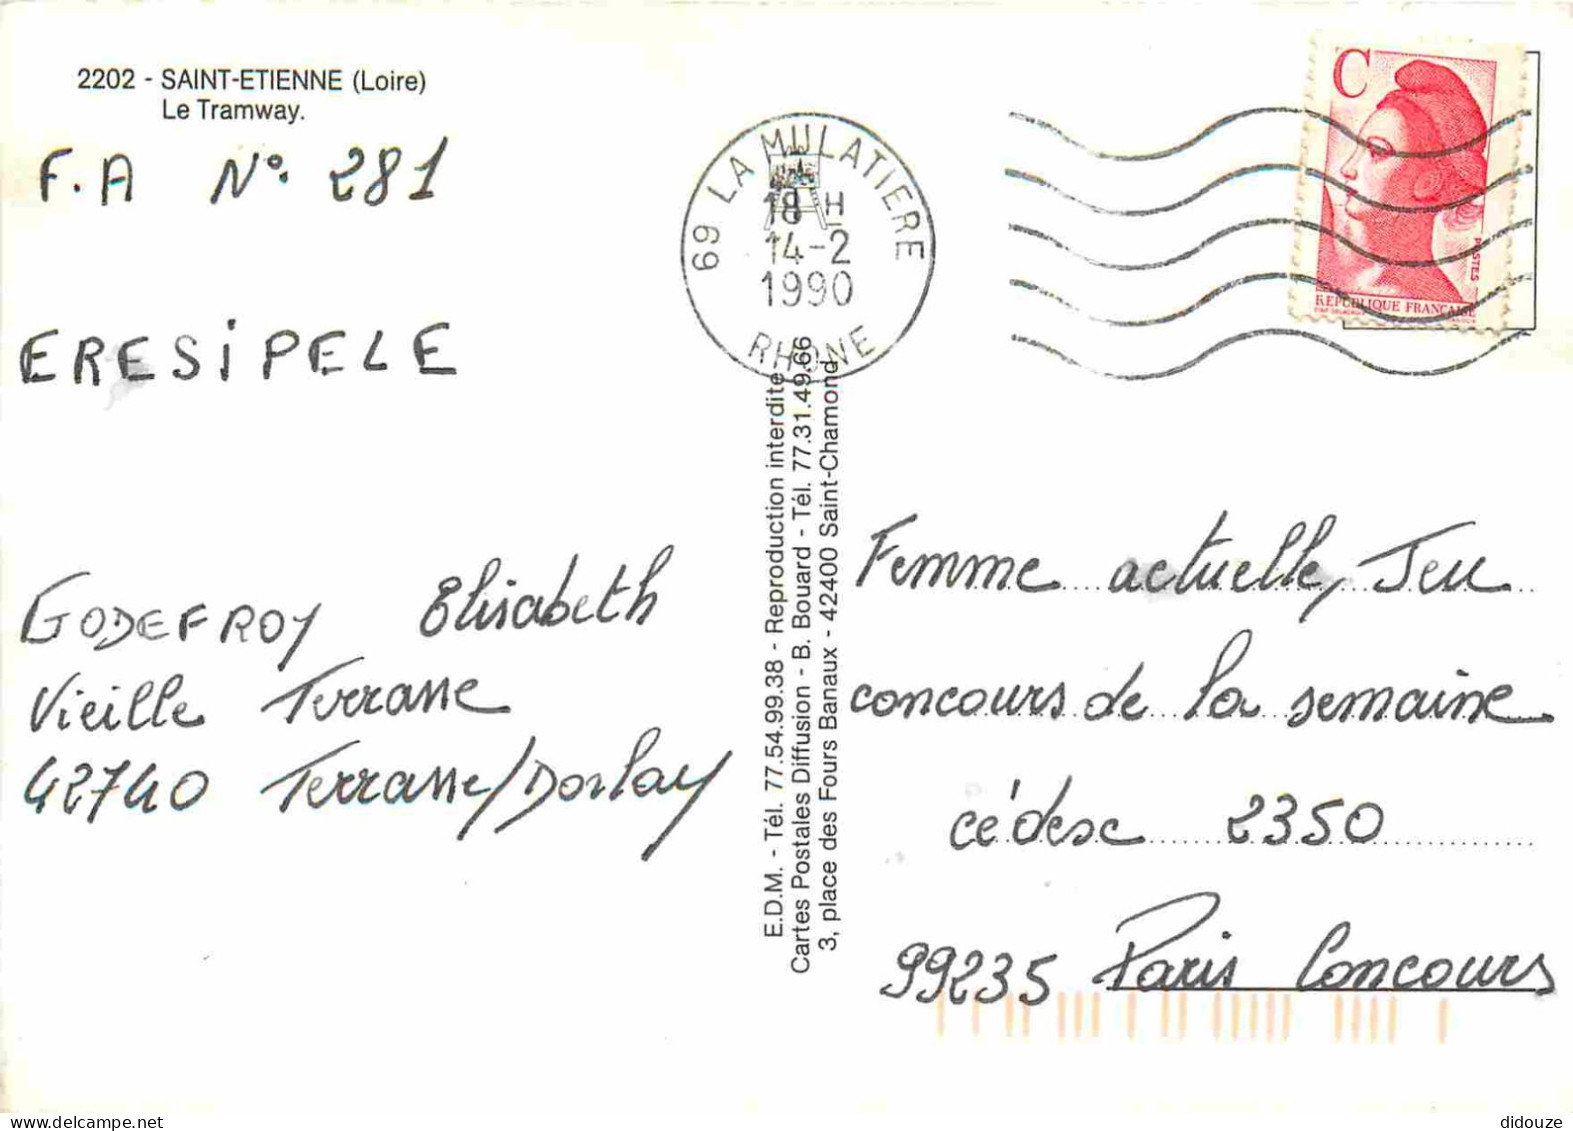 2202 - SAINT-ETIENNE (Loire)
Le Tramway.
F.A N°. 281
ERESIPELE
GODEFROY Elisabeth
Vieille Terrasse
42740 Terrasse/Dorlay
69 LA MULATIERE
18 H
14-2
1990
RHONE
C
POSTES
REPUBLIQUE FRANÇAISE
E.D.M. - Tél. 77.54.99.38 - Reproduction interdite
Cartes Postales Diffusion - B. Bouard - Tél. 77.31.49.66
3, place des Fours Banaux - 42400 Saint-Chamond
Femme actuelle, Jeu
concours de la semaine
cédesc 2350
99235 Paris Concours
didouze